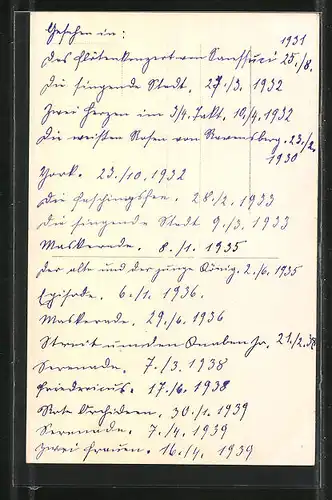 Gesehen in:
1931
Das Flötenkonzert von Sanssuci 25./8.
Die singende Stadt. 27./3. 1932
Zwei Herzen im 3/4 Takt. 10./4. 1932
Die weißen Rosen von Ravensberg. 23./2.
1930
York. 23./10. 1932
Die Faschingsfee. 28./2. 1933
Die singende Stadt 9./3. 1933
Maskerade. 8./1. 1935
Der alte und der junge König. 2./6. 1935
Episode. 6./1. 1936.
Maskerade. 29./6. 1936
Streit um den Knaben Jo. 21./2. 38
Serenade. 7./3. 1938
Fridericus. 17./6. 1938
Rote Orchideen. 30./1. 1939
Serenade. 7./4. 1939
Zwei Frauen. 16./4. 1939